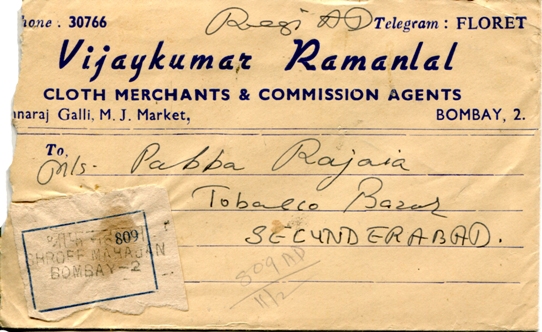 hone : 30766 Regi AD Telegram : FLORET
Vijaykumar Ramanlal
CLOTH MERCHANTS & COMMISSION AGENTS
nnaraj Galli, M. J. Market, BOMBAY, 2.
To,
M/s. Pabba Rajaia
Tobacco Bazar
SECUNDERABAD.
809
SHROFF MAHAJAN
BOMBAY-2
809 AD